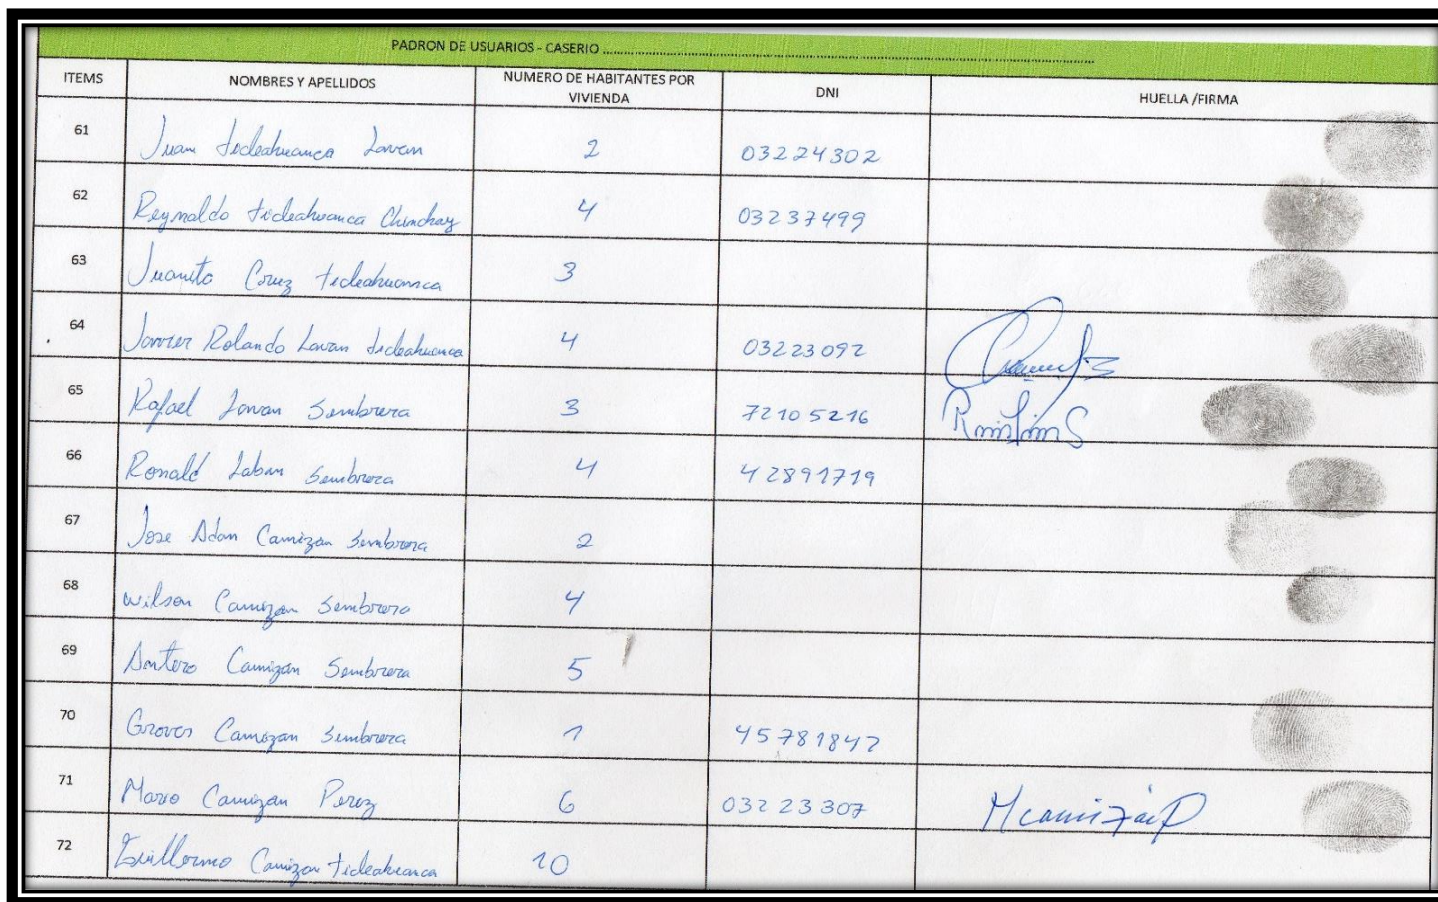 PADRON DE USUARIOS - CASERIO ................................................
ITEMS NOMBRES Y APELLIDOS NUMERO DE HABITANTES POR VIVIENDA DNI HUELLA /FIRMA
61 Juan ticleahuanca Lavan 2 03224302
62 Reynaldo ticleahuanca Chinchay 4 03237499
63 Juanito Cruz ticleahuanca 3
64 Javier Rolando Lavan ticleahuanca 4 03223092
65 Rafael Lavan Sembrera 3 72105216
66 Ronald Laban Sembrera 4 42891719
67 Jose Adan Camizan Sembrera 2
68 wilson Camizan Sembrera 4
69 Antero Camizan Sembrera 5
70 Camizan Sembrera 1 45781842
71 Mario Camizan Perez 6 03223307 MCamizánP
72 Guillermo Camizan ticleahuanca 10